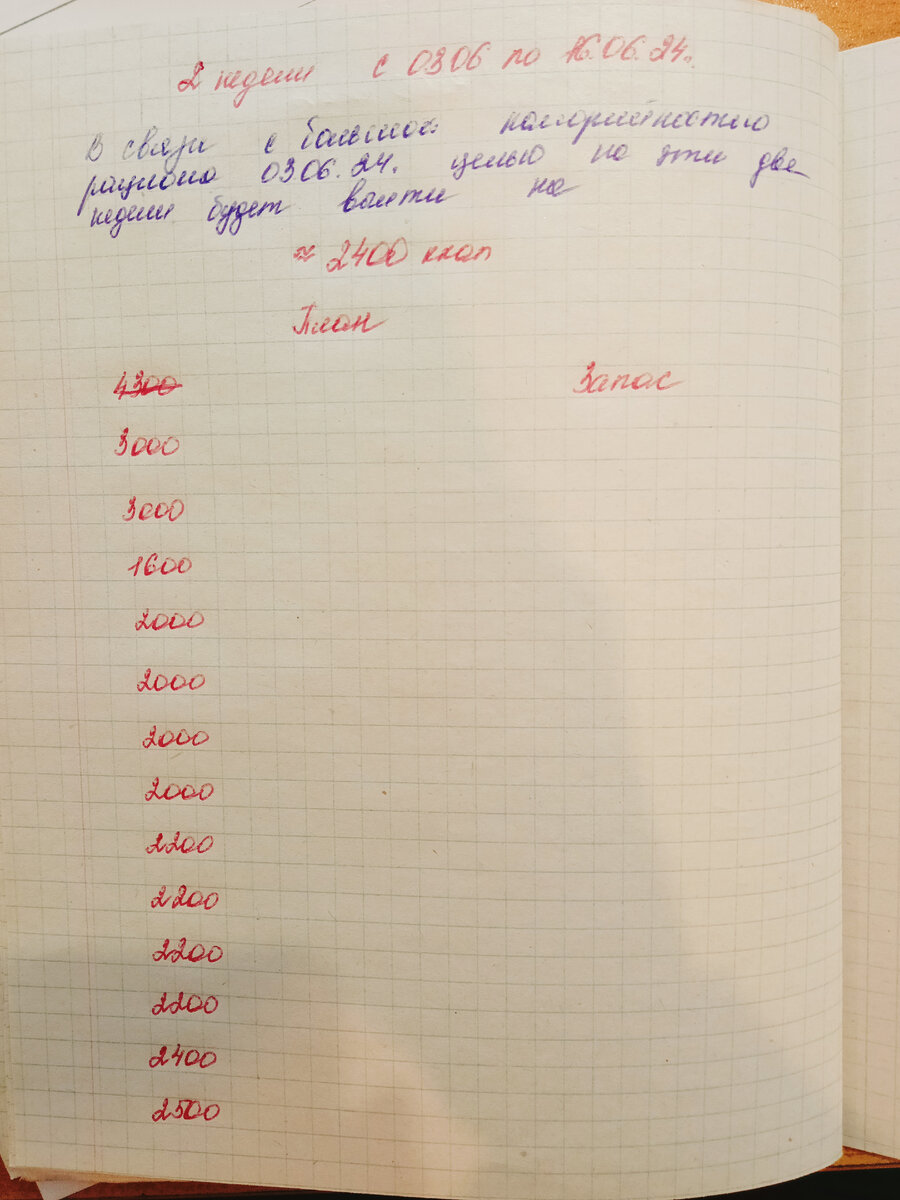 2 недели с 03 06 по 16.06.24.
В связи с большой калорийностью
рациона 03 06.24. целью на эти две
недели будет выйти на
≈ 2400 ккал
План
4300 Запас
3000
3000
1600
2000
2000
2000
2000
2200
2200
2200
2200
2400
2500